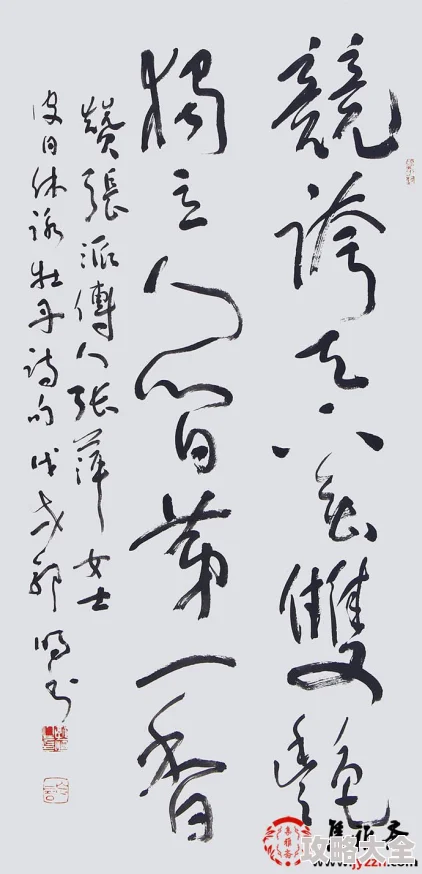 競誇天下無雙艷
獨立人間第一香
贊張派傳人張萍女士
皮日休詠牡丹詩句戊戌郭书
集雅斋
攻略大全